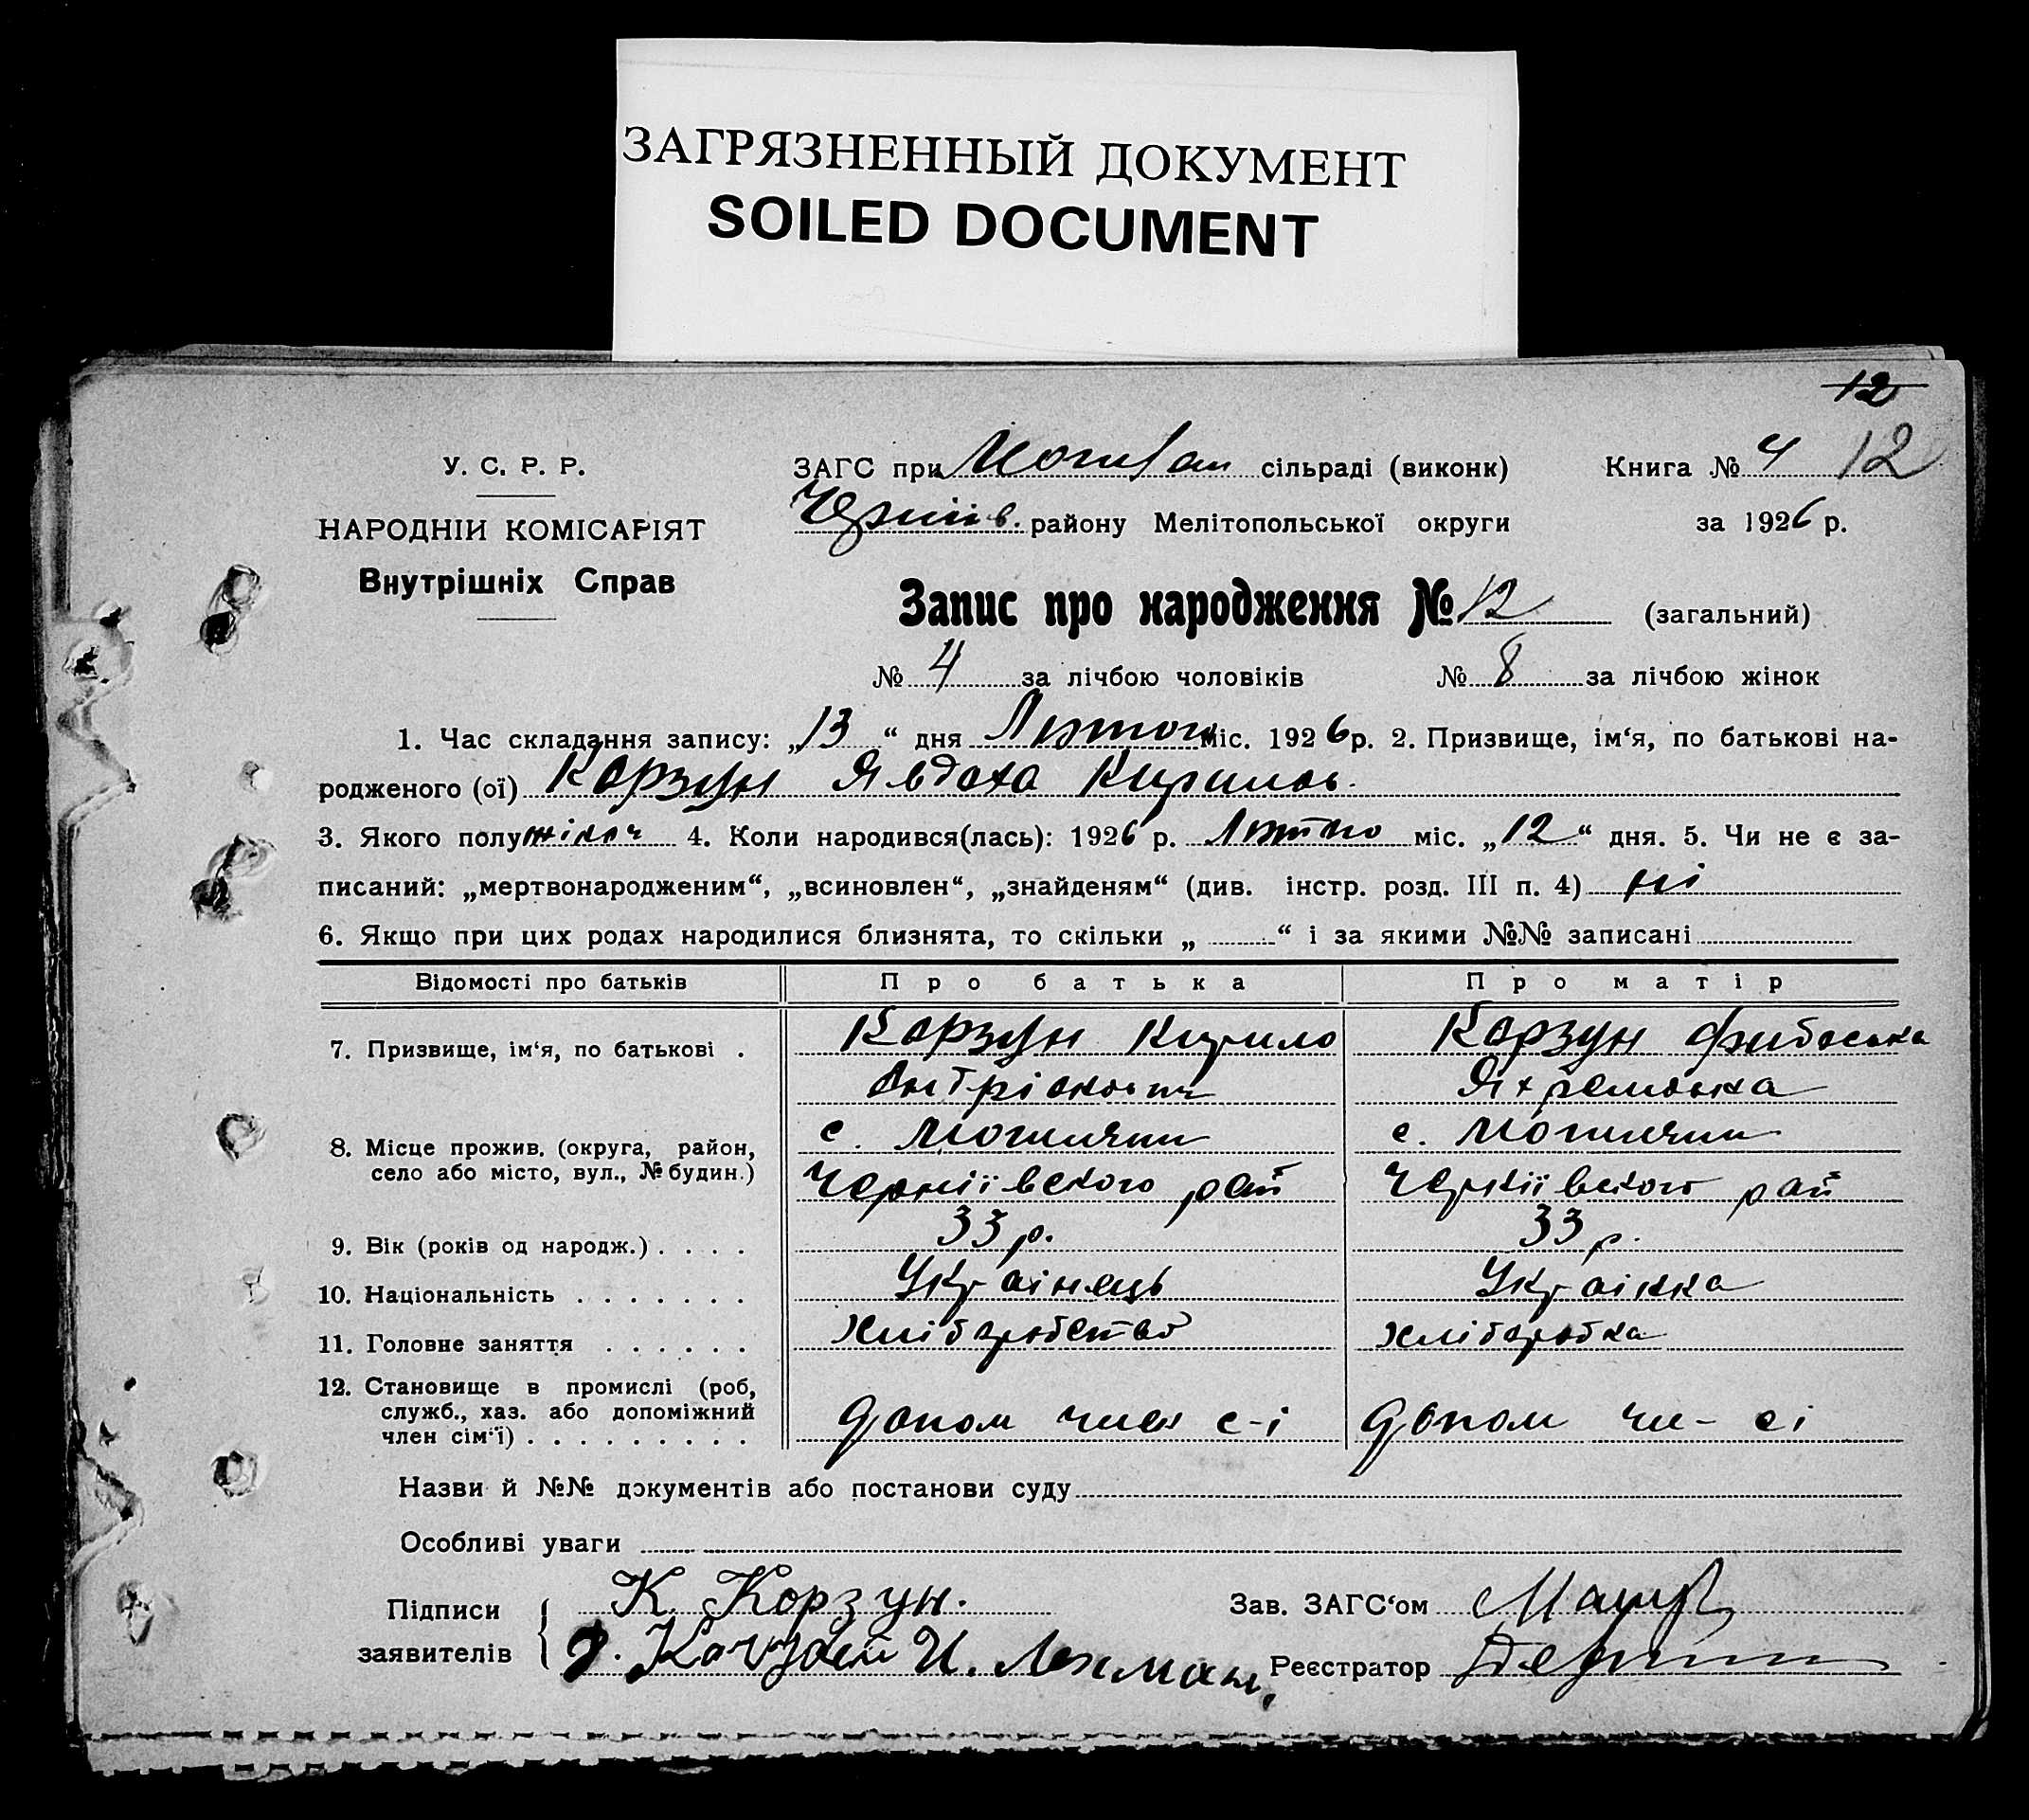 ЗАГРЯЗНЕННЫЙ ДОКУМЕНТ
SOILED DOCUMENT
12
12
У. С. Р. Р.
НАРОДНІЙ КОМІСАРІЯТ
Внутрішніх Справ
ЗАГС при сільраді (виконк)
Книга № 4
району Мелітопольської округи
за 1926 р.
Запис про народження № 12 (загальний)
№ 4 за лічбою чоловіків № 8 за лічбою жінок
1. Час складання запису: „13“ дня міс. 1926 р. 2. Призвище, ім‘я, по батькові на-
родженого (ої) Корзун Явдоха Кирилов.
3. Якого полу жіноч 4. Коли народився(лась): 1926 р. міс. „12“ дня. 5. Чи не є за-
писаний: „мертвонародженим“, „всиновлен“, „знайденям“ (див. інстр. розд. III п. 4) ні
6. Якщо при цих родах народилися близнята, то скільки „ “ і за якими №№ записані
Відомості про батьків Про батька Про матір
7. Призвище, ім‘я, по батькові . Корзун Кирило Корзун
8. Місце прожив. (округа, район,
село або місто, вул., № будин.)
с. с.
Черніївського рай Черніївського рай
9. Вік (років од народж.) . . . . 33 р. 33 р.
10. Національність . . . . . . . Українець Українка
11. Головне заняття . . . . . . хліборобство хліборобка
12. Становище в промислі (роб,
служб., хаз. або допоміжний
член сім‘ї) . . . . . . . . . допом член с-і допом чл- сі
Назви й №№ документів або постанови суду
Особливі уваги
Підписи
заявителів
К. Корзун.
И.
Зав. ЗАГС‘ом
Реєстратор